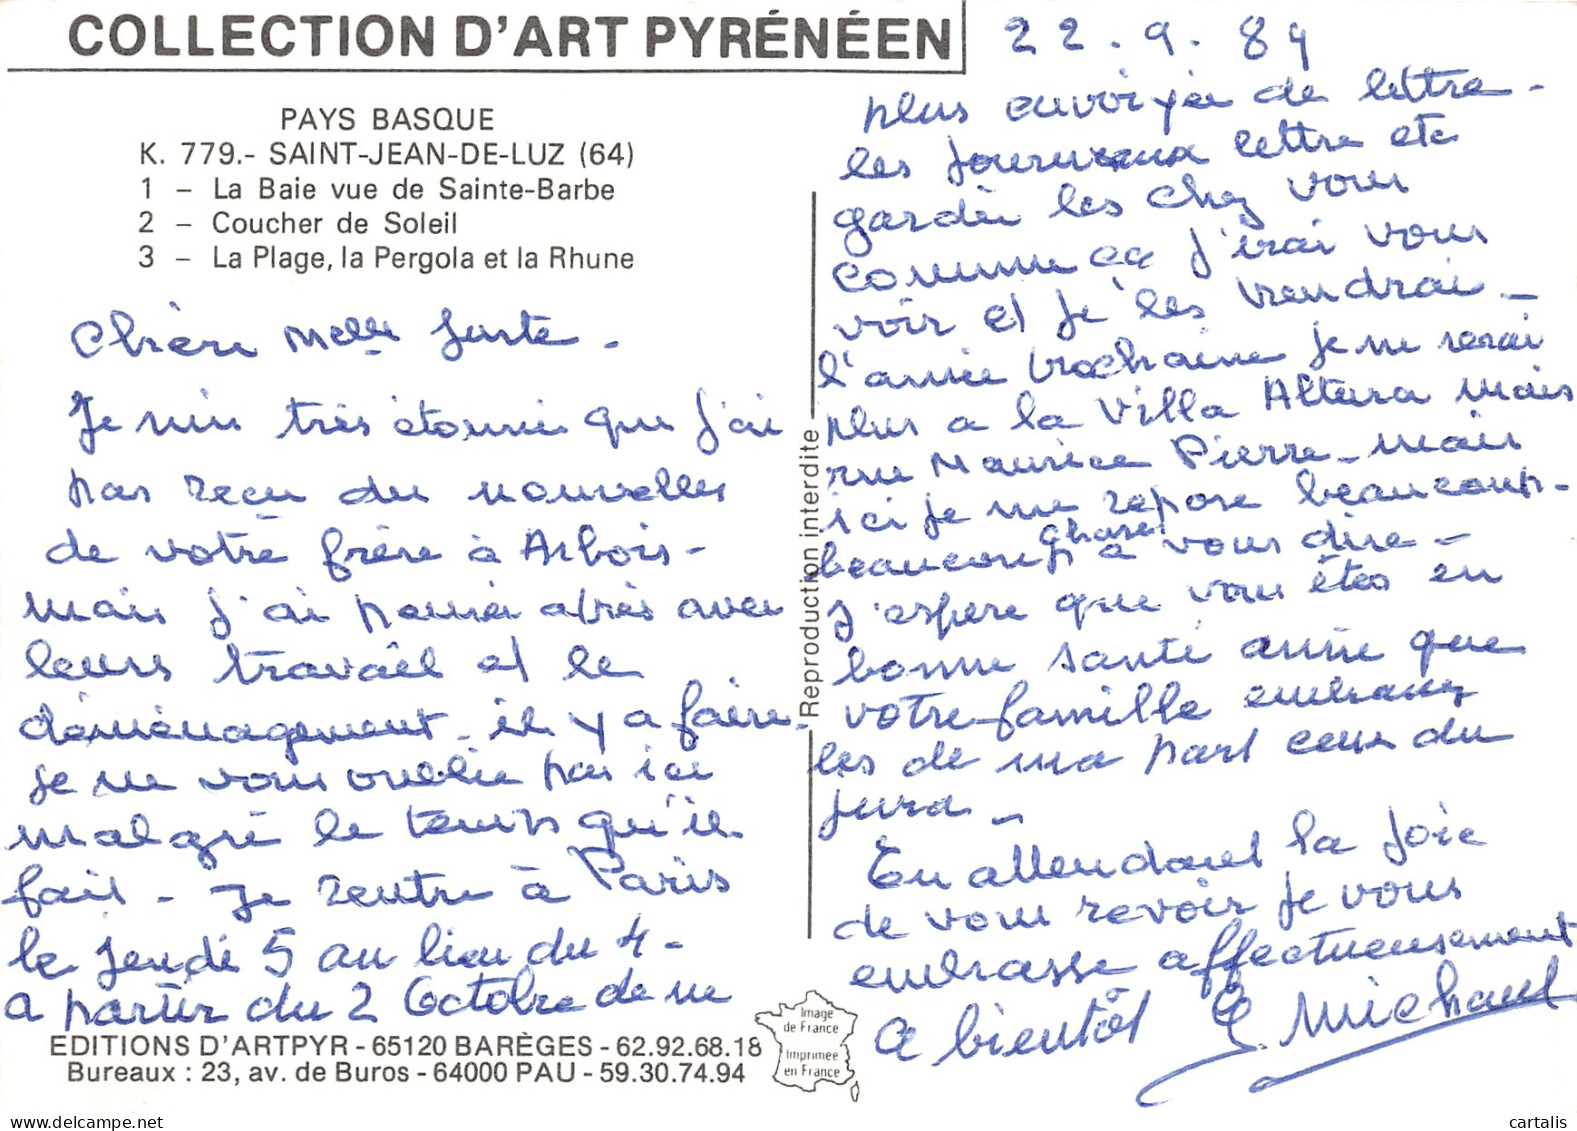 COLLECTION D'ART PYRÉNÉEN
PAYS BASQUE
K. 779.- SAINT-JEAN-DE-LUZ (64)
1 - La Baie vue de Sainte-Barbe
2 - Coucher de Soleil
3 - La Plage, la Pergola et la Rhune
Chère Melle Juste -
Je suis très étonnée que j'ai
pas reçu du nouvelles
de votre frère à Arbois -
mais j'ai pensée après avec
leurs travail et le
déménagement il y a faire -
je ne vous oublie pas ici
malgré le temps qu'il
fait - Je rentre à Paris
le jeudi 5 au lieu du 4 -
a partir du 2 Octobre de ne
22.9.89
plus envoiyée de lettre -
les journeaux lettre etc
gardée les chez vous
comme ça j'irai vous
voir et je les prendrai -
l'année prochaine je ne serai
plus a la Villa Altura mais
rue Maurice Pierre - mais
ici je me repose beaucoup -
beaucoup chose a vous dire -
J'espère que vous êtes en
bonne santé ainsie que
votre famille embrassez
les de ma part ceux du
jura -
En attendant la joie
de vous revoir je vous
embrasse affectueusement
a bientôt G. Michaud
Reproduction interdite
EDITIONS D'ARTPYR - 65120 BARÈGES - 62.92.68.18
Bureaux : 23, av. de Buros - 64000 PAU - 59.30.74.94
Image
de France
Imprimée
en France
cartalis